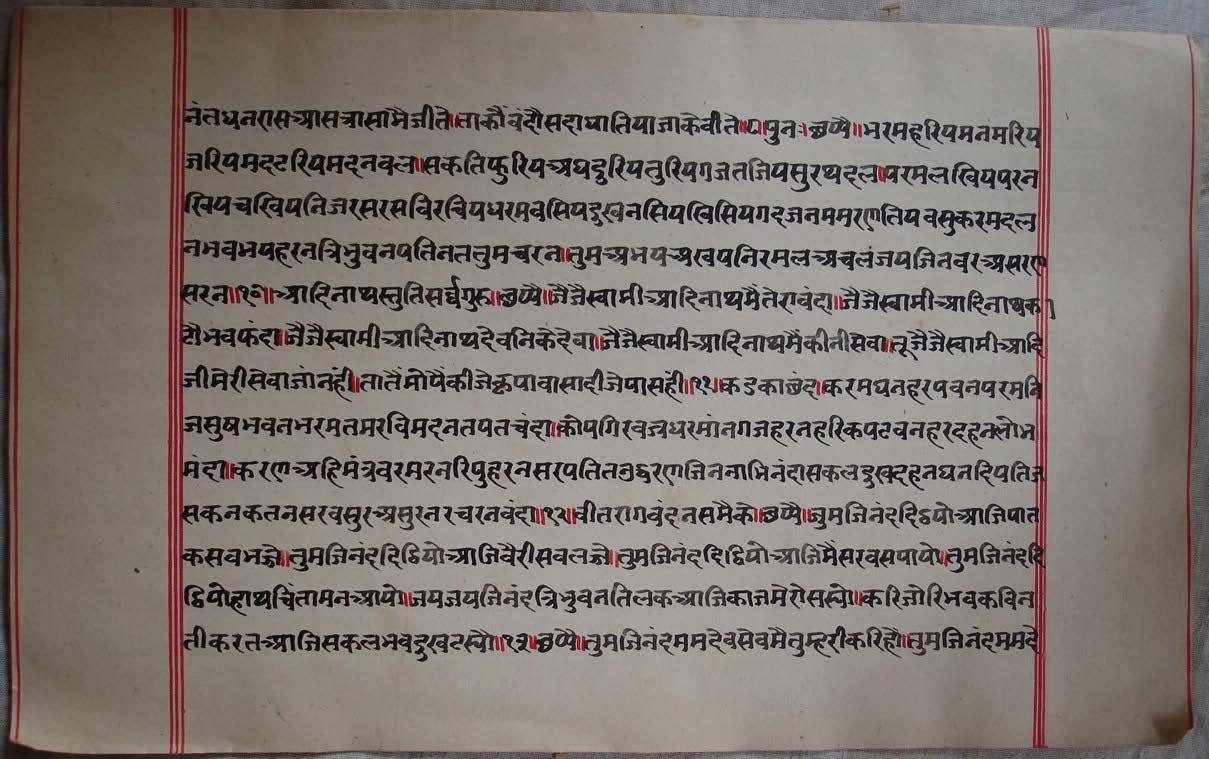 नंतधनरासआसत्राससामैजीते॥ताकौंवंदौसदाघातियाजाकेवीते॥९॥पुनः॥छप्पै॥भरमहरियमनमरिय
जरियमदटरियमदनवल॥सकतिफुरियअघदुरियतुरियगजतजियसुरथदल॥परमलखियपरन
खियचखियनिजरससविरचियधरमवसियदुखनसियखिसियगदजनममरणतियवसुकरमदल
नभवभयहरनत्रिभुवनपतिनततुमचरन॥तुमअभयअखयनिरमलअचलंजयजिनवरअसरण
सरन॥१०॥आदिनाथस्तुतिसर्वगुरु॥छप्पै॥जैजैस्वामीआदिनाथमैतेरावंदा॥जैजैस्वामीआदिनाथक
टौभवफंदा॥जैजैस्वामीआदिनाथदेवनिकेदेवा॥जैजैस्वामीआदिनाथमैंकीनीसेवा॥तूजैजैस्वामीआदि
जीमेरीसेवाजांनंही॥तातैंमोपैंकीजेकृपावासादीजेपासहीं॥११॥कडकाछंद॥करमघनहरपवनपरमनि
जसुषभवनभरमतमरविमदनतपतचंदा॥कोपगिरवज्रधरमांनगजहरनहरिकपटवनहरदहनलोभ
मंदा॥करणअहिमंत्रवरमरनरिपुहरनसरपतितउद्धरणजिननाभिनंदासकलदुखदहनघनदिपतिज
सकनकतनसरवसुरअसुरनरचरनवंदा॥१२॥वीतरागवंदनसमैकेछप्पै॥तुमजिनंददिठ्ठियोआजिपात
कसवभज्जे॥तुमजिनंददिठ्ठियोआजिवैरीसवलज्जे॥तुमजिनंददिठ्ठियोआजिमैंसरवसपायो॥तुमजिनंददि
ठ्ठियोहाथचिंतामनआयो॥जयजयजिनंदत्रिभुवनतिलकआजिकाजमेरोसस्यो॥करिजोरिभवकविन
तीकरतआजिसकलभवदुखटस्यो॥१३॥छप्पै॥तुमजिनंदममदेवसेवमैतुम्हरीकरिहौं॥तुमजिनंदममदे